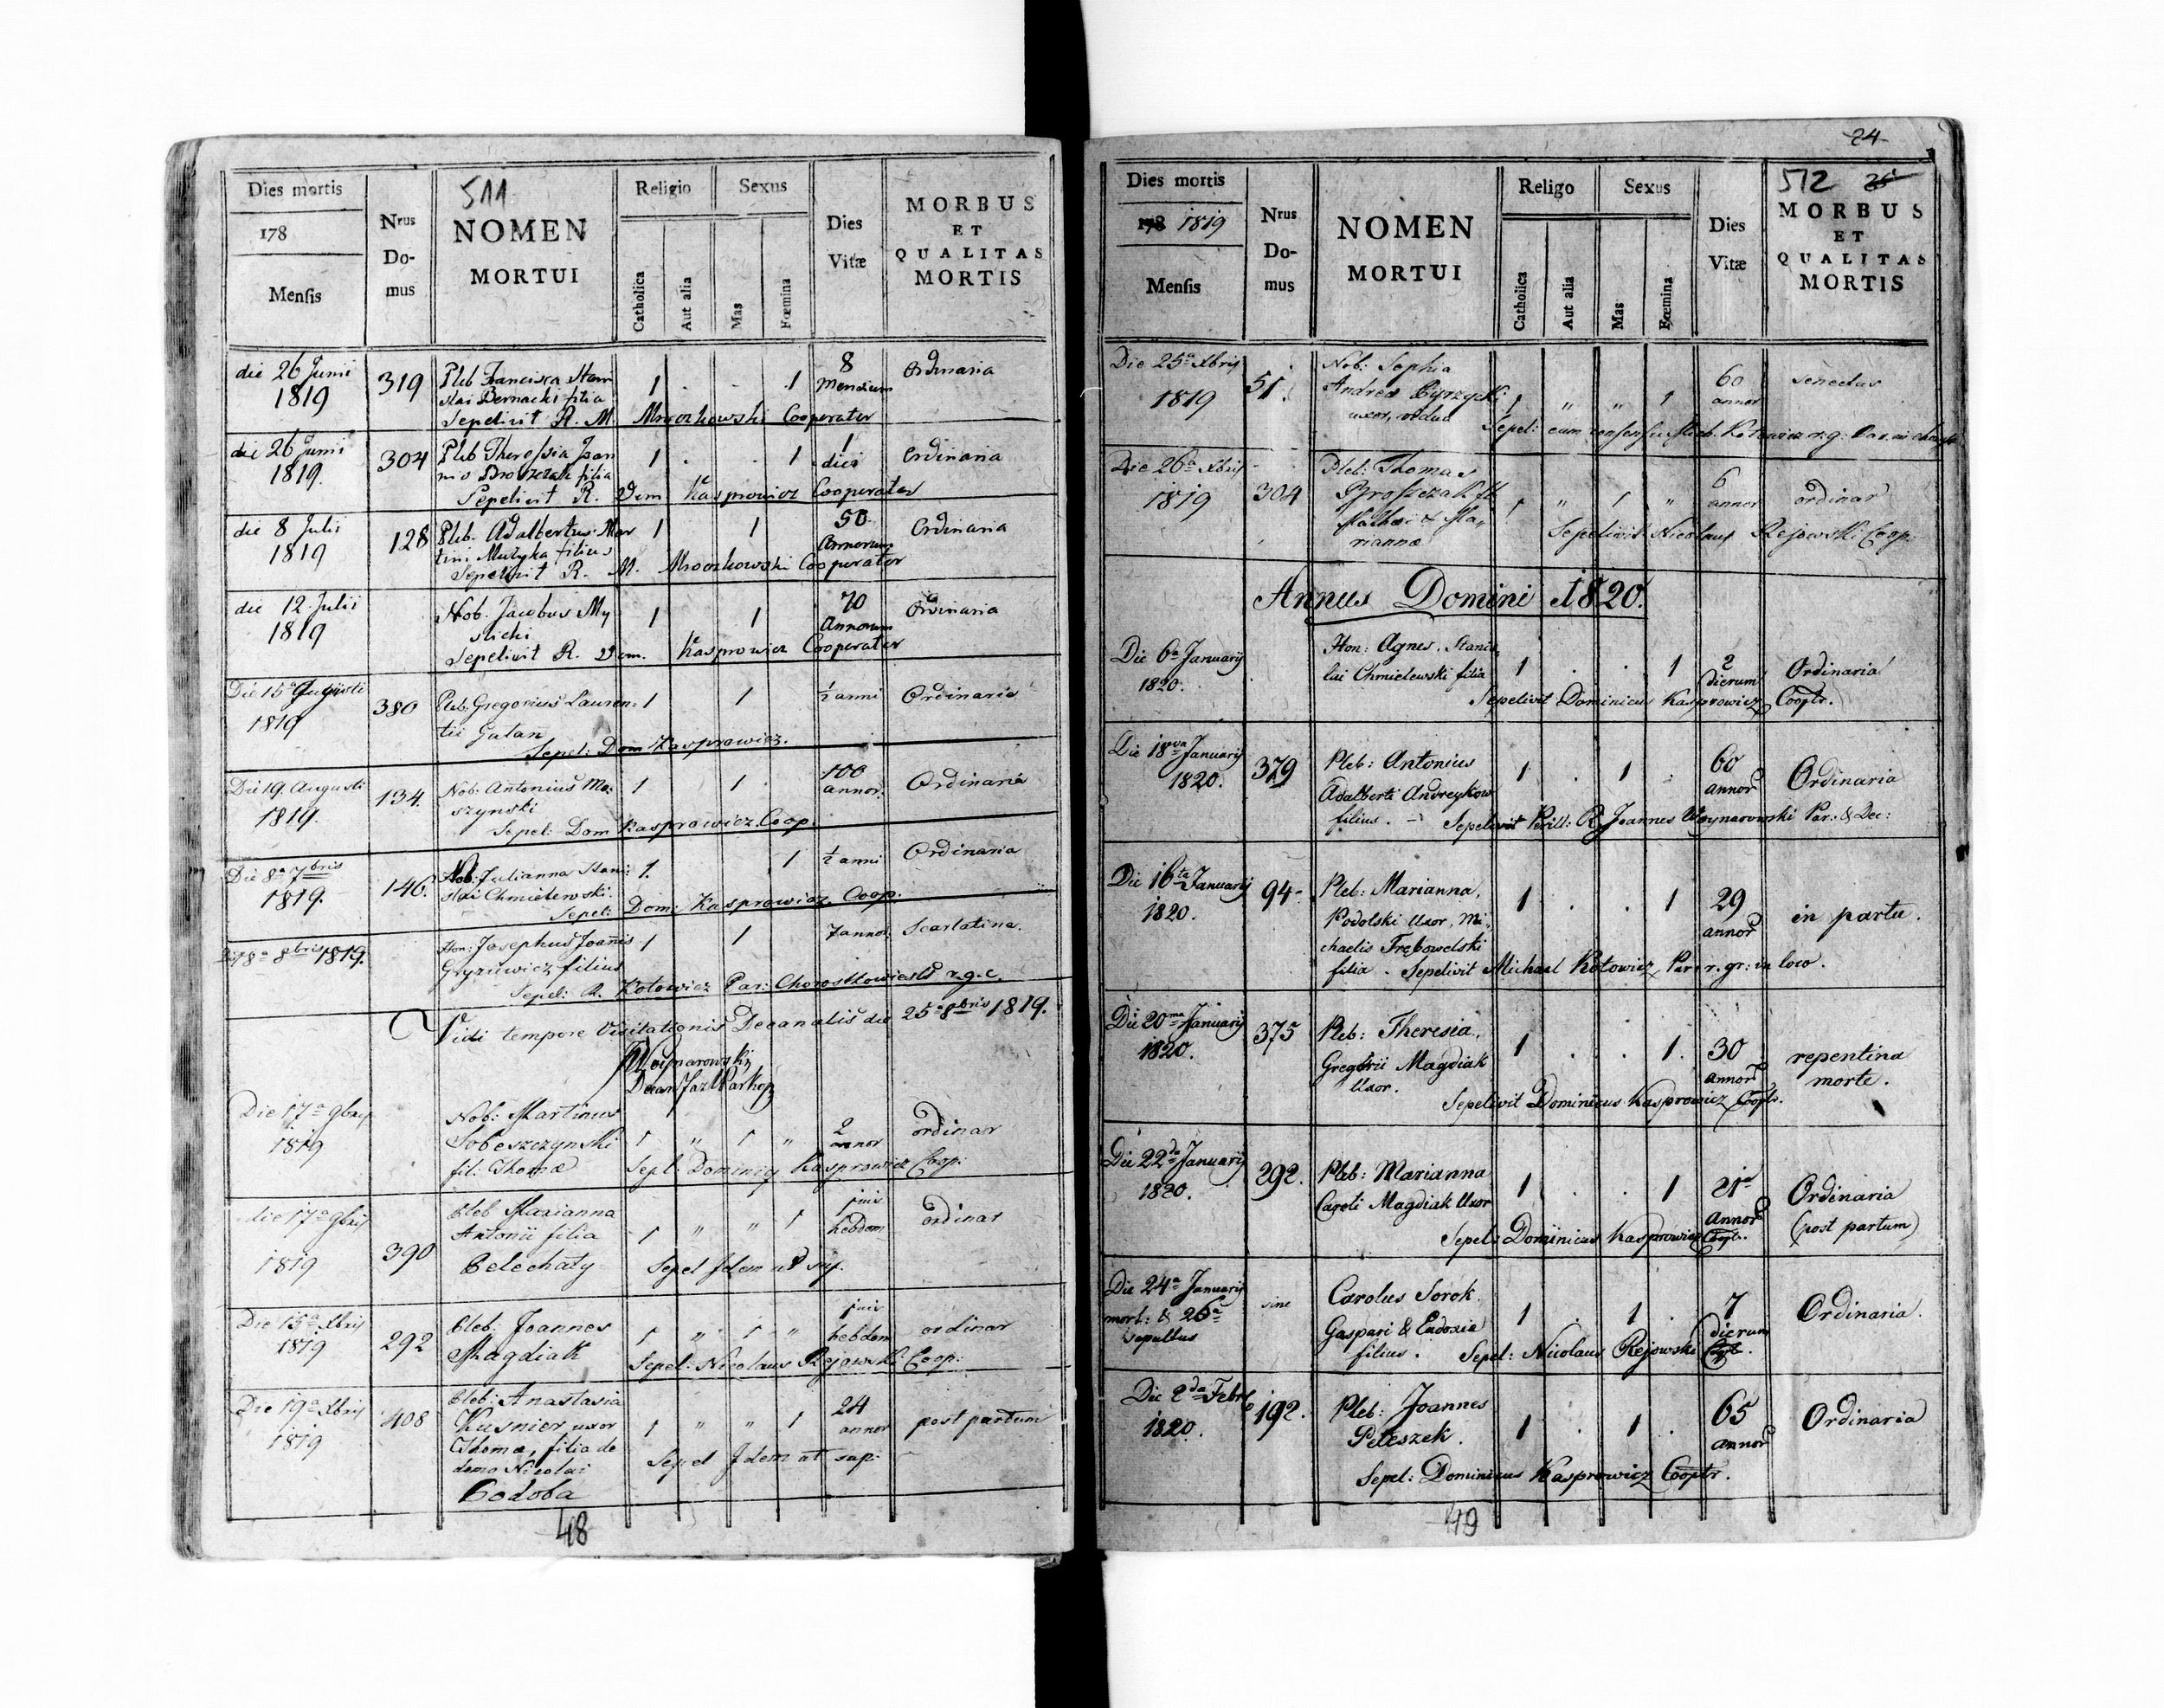 511
Dies mortis
178
Mensis
Nrus
Do-
mus
NOMEN
MORTUI
Religio
Catholica
Aut alia
Sexus
Mas
Fœmina
Dies
Vitæ
MORBUS
ET
QUALITAS
MORTIS
die 26 Junii
1819
319
Pleb Francisca Stani
slai Bernacki filia
1 . . 1
8
Mensium
Ordinaria
Sepelivit R. M. Mroczkowski Cooperator
die 26 Junii
1819.
304
Pleb Theressia Joan
nis filia
1 . . 1
1
diei
Ordinaria
Sepelivit R. Dom Kasprowicz Cooperator
die 8 Julii
1819
128
Pleb. Adalbertus Mar
tini Muzyka filius
1 1
50.
Annorum
Ordinaria
Sepelivit R. M. Mroczkowski Cooperator
die 12 Julii
1819
Nob. Jacobus My
slicki
1 1
70
Annorum
Ordinaria
Sepelivit R. Dom. Kasprowicz Cooperator
Die 15a Augusti
1819
380
Pleb. Gregorius Lauren:
tii Gutan
1 1
½ anni
Ordinaria
Sepel: Dom Kasprowicz.
Die 19. Augusti
1819.
134.
Nob: Antonius Mo:
szynski
1 1
100
annor:
Ordinaria
Sepel: Dom Kasprowicz. Coop.
Die 8a 7bris
1819.
146.
Nob: Julianna Stani:
slai Chmielewski.
1. 1
½ anni
Ordinaria
Sepel: Dom: Kasprowicz. Coop.
8bris 1819.
Hon: Josephus Joannis
Gryzuwicz filius
1 1
7 annor.
Scarlatina.
Sepel: R. Kotowicz Par: Chorostkowiensis r.g.c.
Vidi tempore Visitationis Decanalis die 25a 8bris 1819.
Die 17a 9bris
1819
Nob: Martinus
Sobeszczynski
fil: Thomæ
1 " 1 "
2
annor
ordinar
Sepl: Dominicg Kasprowicz Coop:
die 17a 9bris
1819
390
Pleb Marianna
Antonii filia
Belechaty
1 " " 1
hebdom
ordinar
Sepel Idem ut sup.
Die 15a Xbris
1819
292
Pleb: Joannes
Magdiak
1 " 1 "
hebdom
ordinar
Sepel: Nicolaus Rejowski Coop:
Die 19a Xbris
1819
408
Pleb: Anastasia
Kusnier uxor
Thomæ, filia de
domo Nicolai
Bodoba
1 " " 1
24
annor
post partum
Sepel Idem ut sup:
48
24
512
Dies mortis
178 1819
Mensis
Nrus
Do-
mus
NOMEN
MORTUI
Religo
Catholica
Aut alia
Sexus
Mas
Fœmina
Dies
Vitæ
MORBUS
ET
QUALITAS
MORTIS
Die 25a Xbris
1819
51.
Nob: Sophia
Andreæ
uxor, vidua
1 " " 1
60
annor
senectus
Sepel: cum consensu Mich. Kotowicz r.g:
Die 26a Xbris
1819
304
Pleb: Thomas
fil
Mathæi & Ma,,
riannæ
1 " 1 "
6
annor
ordinar
Sepelivit Nicolaus Rejowski Coop:
Annus Domini 1820.
Die 6a January
1820.
Hon: Agnes. Stanis
lai Chmielewski filia
1 . . 1
2
dierum
Ordinaria
Sepelivit Dominicus Kasprowicz Cooptr.
Die 18va January
1820.
379
Pleb: Antonius
Adalberti Andreykow
filius. -
1 . 1 .
60
annor
Ordinaria
Sepelivit Perill: R. Joannes Woynarowski Par: & Dec:
Die 16ta January
1820.
94-
Pleb: Marianna,
Podolski Uxor, Mi:
chaelis Trębowelski
1 . . 1
29
annor
in partu.
filia. Sepelivit Michael Kotowicz, Par: r. gr: in loco.
Die 20ma January
1820.
375
Pleb: Theresia,
Gregorii Magdiak
Uxor.
1 . . 1.
30
annor
repentina
morte.
Sepelivit Dominicus Kasprowicz Cooptr.
Die 22da January
1820.
292.
Pleb: Marianna
Caroli Magdiak Uxor
1 . . 1
21a
Annor
Ordinaria
(post partum)
Sepel: Dominicus Kasprowicz Cooptr.
Die 24a January
mort: & 26a
sepultus
sine
Carolus Sorok.
Gaspari & Eudoxia
filius.
1 . 1 .
7
dierum
Ordinaria.
Sepel: Nicolaus Rejowski
Die 2da Febr
1820.
192.
Pleb: Joannes
Peleszek.
1 . 1 .
65
annor
Ordinaria
Sepel: Dominicus Kasprowicz Cooptr.
49